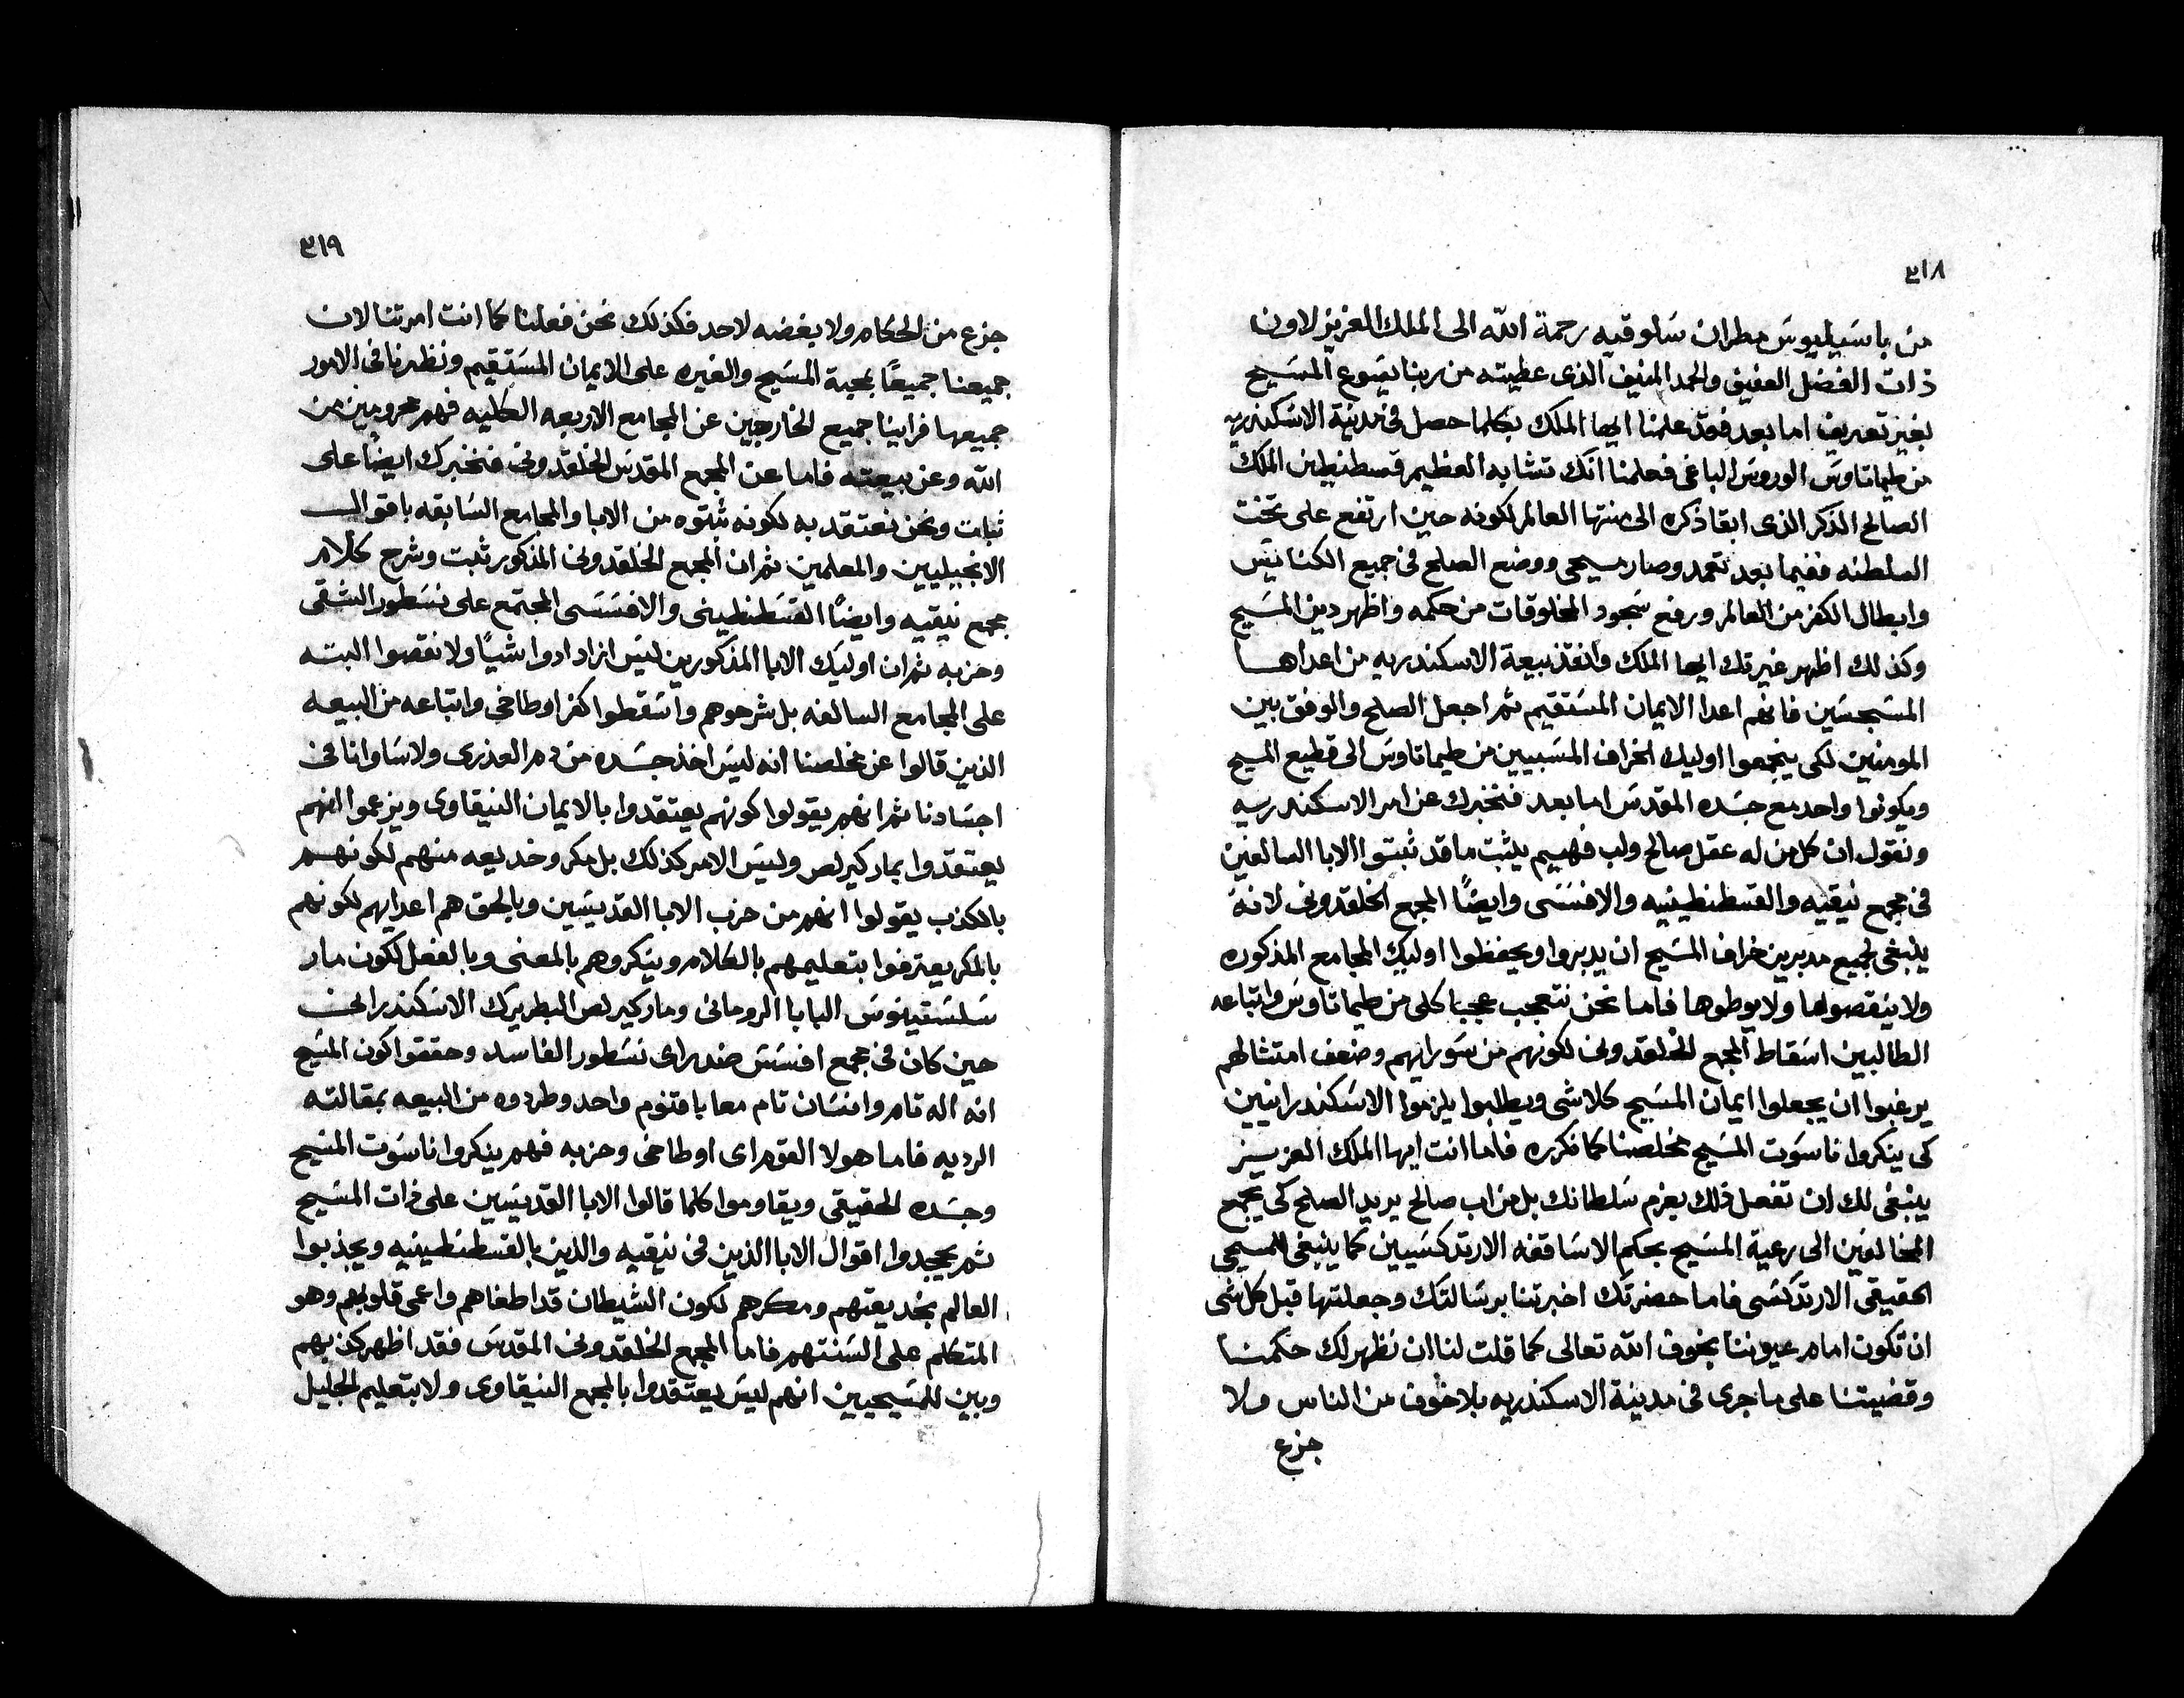 ٣١٨
من باسيليوس مطران سلوقيه رحمة الله الى الملك العزيز لاون
ذات الفضل العفيف والحمد المنيف الذى عطيته من ربنا يسوع المسيح
بغير تعريف اما بعد فقد علمنا ايها الملك بكلما حصل فى مدينة الاسكندريه
من طيماتاوس الوروس الباغى فعلمنا انك تشابه العظيم قسطنطين الملك
الصالح الذكر الذى ابقا ذكره الى منتها العالم لكونه حين ارتفع على تخت
السلطنه ففيما بعد تعمد وصار مسيحى ووضع الصلح فى جميع الكنايس
وابطال الكفر من العالم ورفع سجود المخلوقات من حكمه واظهر دين المسيح
وكذلك اظهر غيرتك ايها الملك وانقذ بيعة الاسكندريه من اعداها
المسجسين فانهم اعدا الايمان المستقيم ثم اجعل الصلح والوفق بين
المومنين لكى ينجمعوا اوليك الخراف المسبيين من طيماتاوس الى قطيع المسيح
ويكونوا واحد مع جسده المقدس اما بعد فنخبرك عن امر الاسكندريه
ونقول ان كل من له عقل صالح ولب فهيم يثبت ما قد ثبتوا الابا السالفين
فى مجمع نيقيه والقسطنطينيه والافسسى وايضًا المجمع الخلقدونى لانه
ينبغى لجميع مدبرين خراف المسيح ان يدبروا ويحفظوا اوليك المجامع المذكوره
ولا ينقصوها ولا يوطوها فاما نحن نتعجب عجبا كلى من طيماتاوس واتباعه
الطالبين اسقاط المجمع الخلقدونى لكونهم من سو رايهم وضعف امتثالهم
يرغبوا ان يجعلوا ايمان المسيح كلاشى ويطلبوا يلزموا الاسكندرانيين
كى ينكروا ناسوت المسيح مخلصنا كما نكرره فاما انت ايها الملك العزيز
ينبغى لك ان تفعل ذلك بعزم سلطانك بل من اب صالح يريد الصلح كى تجمع
المخالفين الى رعية المسيح بحكم الاساقفه الارتدكسيين كما ينبغى للمسيحى
الحقيقى الارتدكسى فاما حضرتك اخبرتنا برسالتك وجعلتها قبل كل شى
ان تكون امام عيوننا بخوف الله تعالى كما قلت لنا ان نظهر لك حكمنا
وقضيتنا على ما جرى فى مدينة الاسكندريه بلا خوف من الناس ولا
جزع
٣١٩
جزع من الحكام ولا بغضه لاحد فكذلك نحن فعلنا كما انت امرتنا لان
جميعنا جميعًا بمحبة المسيح والغيره على الايمان المستقيم ونظرنا فى الامور
جميعها فراينا جميع الخارجين عن المجامع الاربعه الكليه فهم محرومين من
الله وعن بيعته فاما عن المجمع المقدس الخلقدونى فنخبرك ايضًا على
ثبات ونحن نعتقد به لكونه ثبتوه من الابا والمجامع السابقه باقوال
الانجيليين والمعلمين ثم ان المجمع الخلقدونى المذكور ثبت وشرح كلام
مجمع نيقيه وايضًا القسطنطينى والافسسى المجتمع على نسطور الشقى
وحزبه ثم ان اوليك الابا المذكورين ليس ازادادوا شيًا ولا نقصوا البته
على المجامع السالفه بل شرحوهم واسقطوا كفر اوطاخى واتباعه من البيعه
الذين قالوا عن مخلصنا انه ليس اخذ جسده من دم العذرى ولا ساوانا فى
اجسادنا ثم انهم يقولوا كونهم يعتقدوا بالايمان النيقاوى ويزعموا انهم
يعتقدوا بمار كيرلص وليس الامر كذلك بل مكر وخديعه منهم لكونهم
بالكذب يقولوا انهم من حزب الابا القديسين وبالحق هم اعدايهم لكونهم
بالمكر يعترفوا بتعليمهم بالكلام وينكروهم بالمعنى وبالفعل لكون مار
سلستينوس البابا الرومانى ومار كيرلص البطريرك الاسكندرانى
حين كان فى مجمع افسس ضد راى نسطور الفاسد وحققوا كون المسيح
انه اله تام وانسان تام معا باقنوم واحد وطردوه من البيعه بمقالته
الرديه فاما هولا القوم اى اوطاخى وحزبه فهم ينكروا ناسوت المسيح
وجسده الحقيقى ويقاوموا كلما قالوا الابا القديسين على ذات المسيح
ثم يجحدوا اقوال الابا الذين فى نيقيه والذين بالقسطنطينيه ويجذبوا
العالم بخديعتهم ومكرهم لكون الشيطان قد اطغاهم واعمى قلوبهم وهو
المتكلم على السنتهم فاما المجمع الخلقدونى المقدس فقد اظهر كذبهم
وبين للمسيحيين انهم ليس يعتقدوا بالمجمع النيقاوى ولا بتعليم الجليل